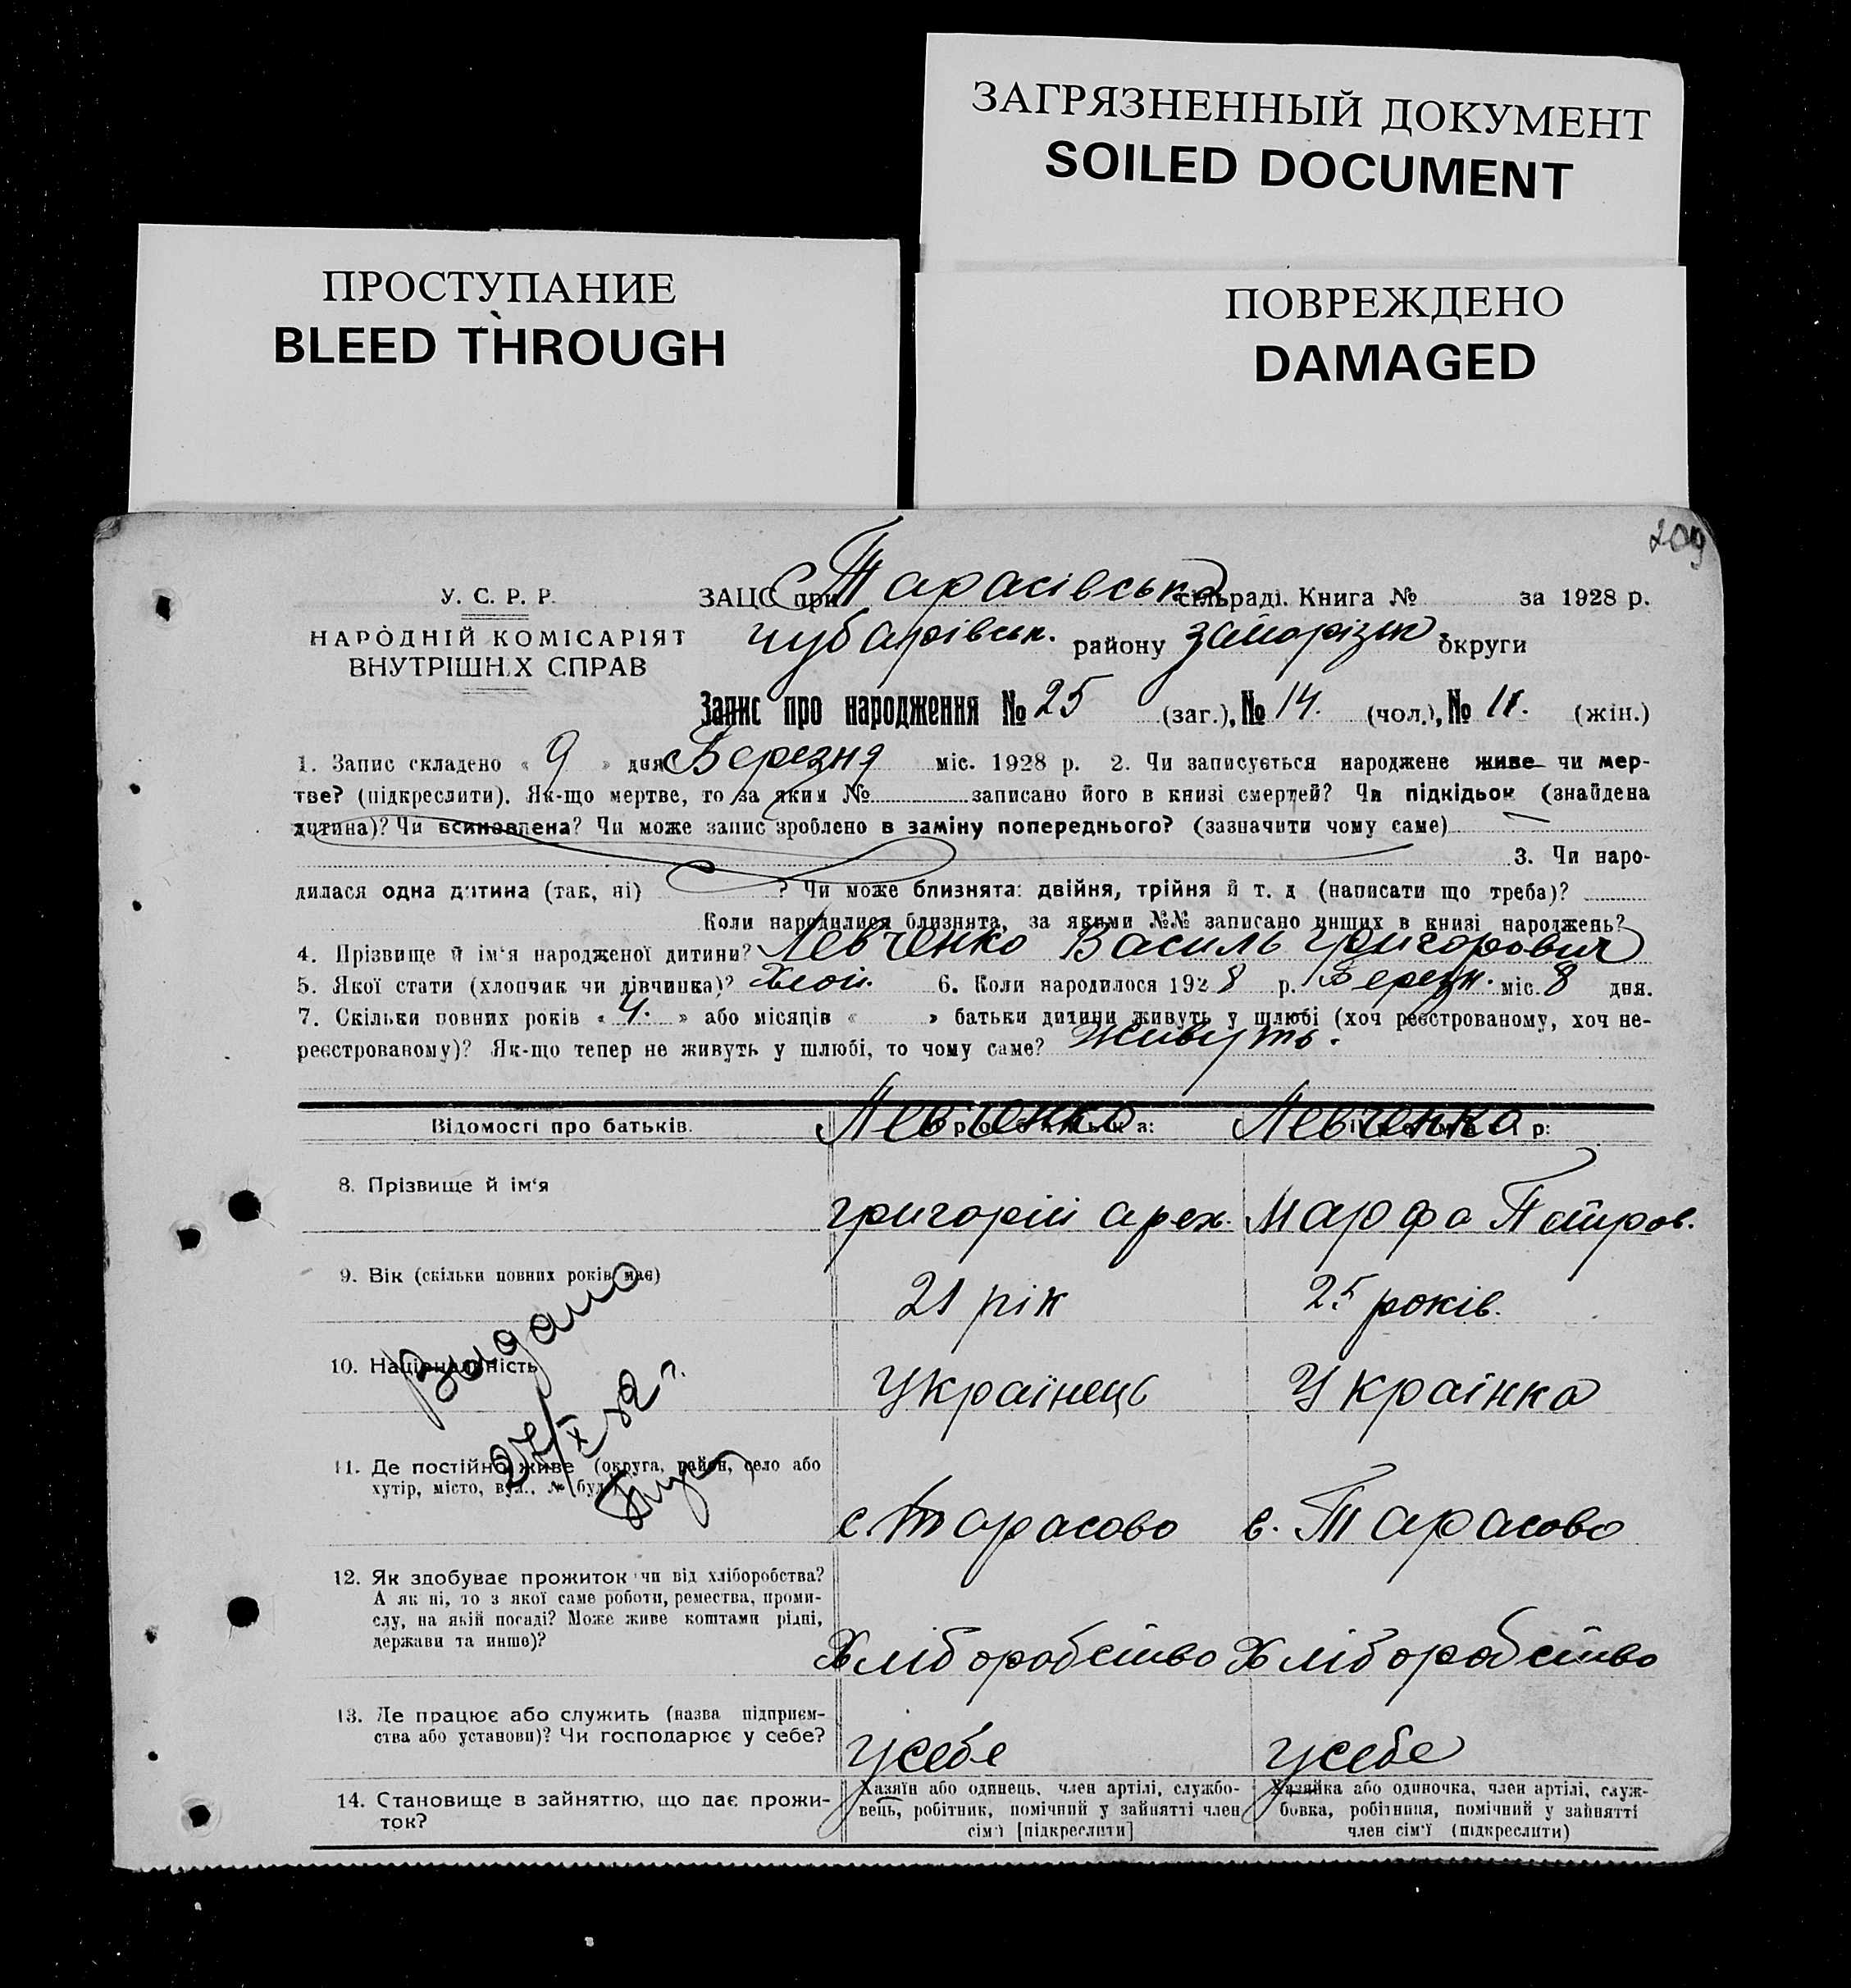 ЗАГРЯЗНЕННЫЙ ДОКУМЕНТ
SOILED DOCUMENT
ПРОСТУПАНИЕ
BLEED THROUGH
ПОВРЕЖДЕНО
DAMAGED
209
У. С. Р. Р.
НАРОДНІЙ КОМІСАРІЯТ
ВНУТРІШНІХ СПРАВ
ЗАЦС при Тарасівська сільраді. Книга № за 1928 р.
Чубарівськ. району Запорізьк округи
Запис про народження № 25 (заг.), № 14. (чол.), № 11. (жін.)
1. Запис складено « 9 » дня Березня міс. 1928 р. 2. Чи записується народжене живе чи мер-
тве? (підкреслити). Як-що мертве, то за яким № записано його в книзі смертей? Чи підкідьок (знайдена
дитина)? Чи всиновлена? Чи може запис зроблено в заміну попереднього? (зазначити чому саме)
3. Чи наро-
дилася одна дитина (так, ні) ? Чи може близнята: двійня, трійня й т. д (написати що треба)?
Коли народилися близнята, за якими №№ записано инших в книзі народжень?
4. Прізвище й ім'я народженої дитини? Левченко Василь Григорович
5. Якої стати (хлопчик чи дівчинка)? Хлоп. 6. Коли народилося 1928 р. Березн. міс. 8 дня.
7. Скільки повних років « 4. » або місяців « » батьки дитини живуть у шлюбі (хоч реєстрованому, хоч не-
реєстрованому)? Як-що тепер не живуть у шлюбі, то чому саме? живуть.
Відомості про батьків. Левченко Левченко
8. Прізвище й ім'я Григорій Арех. Марфа Петров.
9. Вік (скільки повних років має) 21 рік 25 років.
10. Національність Українець Українка
Видано
27/X 32 р.
11. Де постійно живе (округа, район, село або
хутір, місто, вул., № буд.) с. Тарасово с. Тарасово
12. Як здобуває прожиток чи від хліборобства?
А як ні, то з якої саме роботи, ремества, проми-
слу, на якій посаді? Може живе коштами рідні,
держави та инше)? Хліборобство Хліборобство
13. Де працює або служить (назва підприєм-
ства або установи)? Чи господарює у себе? У себе У себе
14. Становище в зайняттю, що дає прожи-
ток?
Хазяїн або одинець, член артілі, службо-
вець, робітник, помічний у зайнятті член
сім'ї [підкреслити]
Хазяйка або одиночка, член артілі, служ-
бовка, робітниця, помічний у зайнятті
член сім'ї (підкреслити)